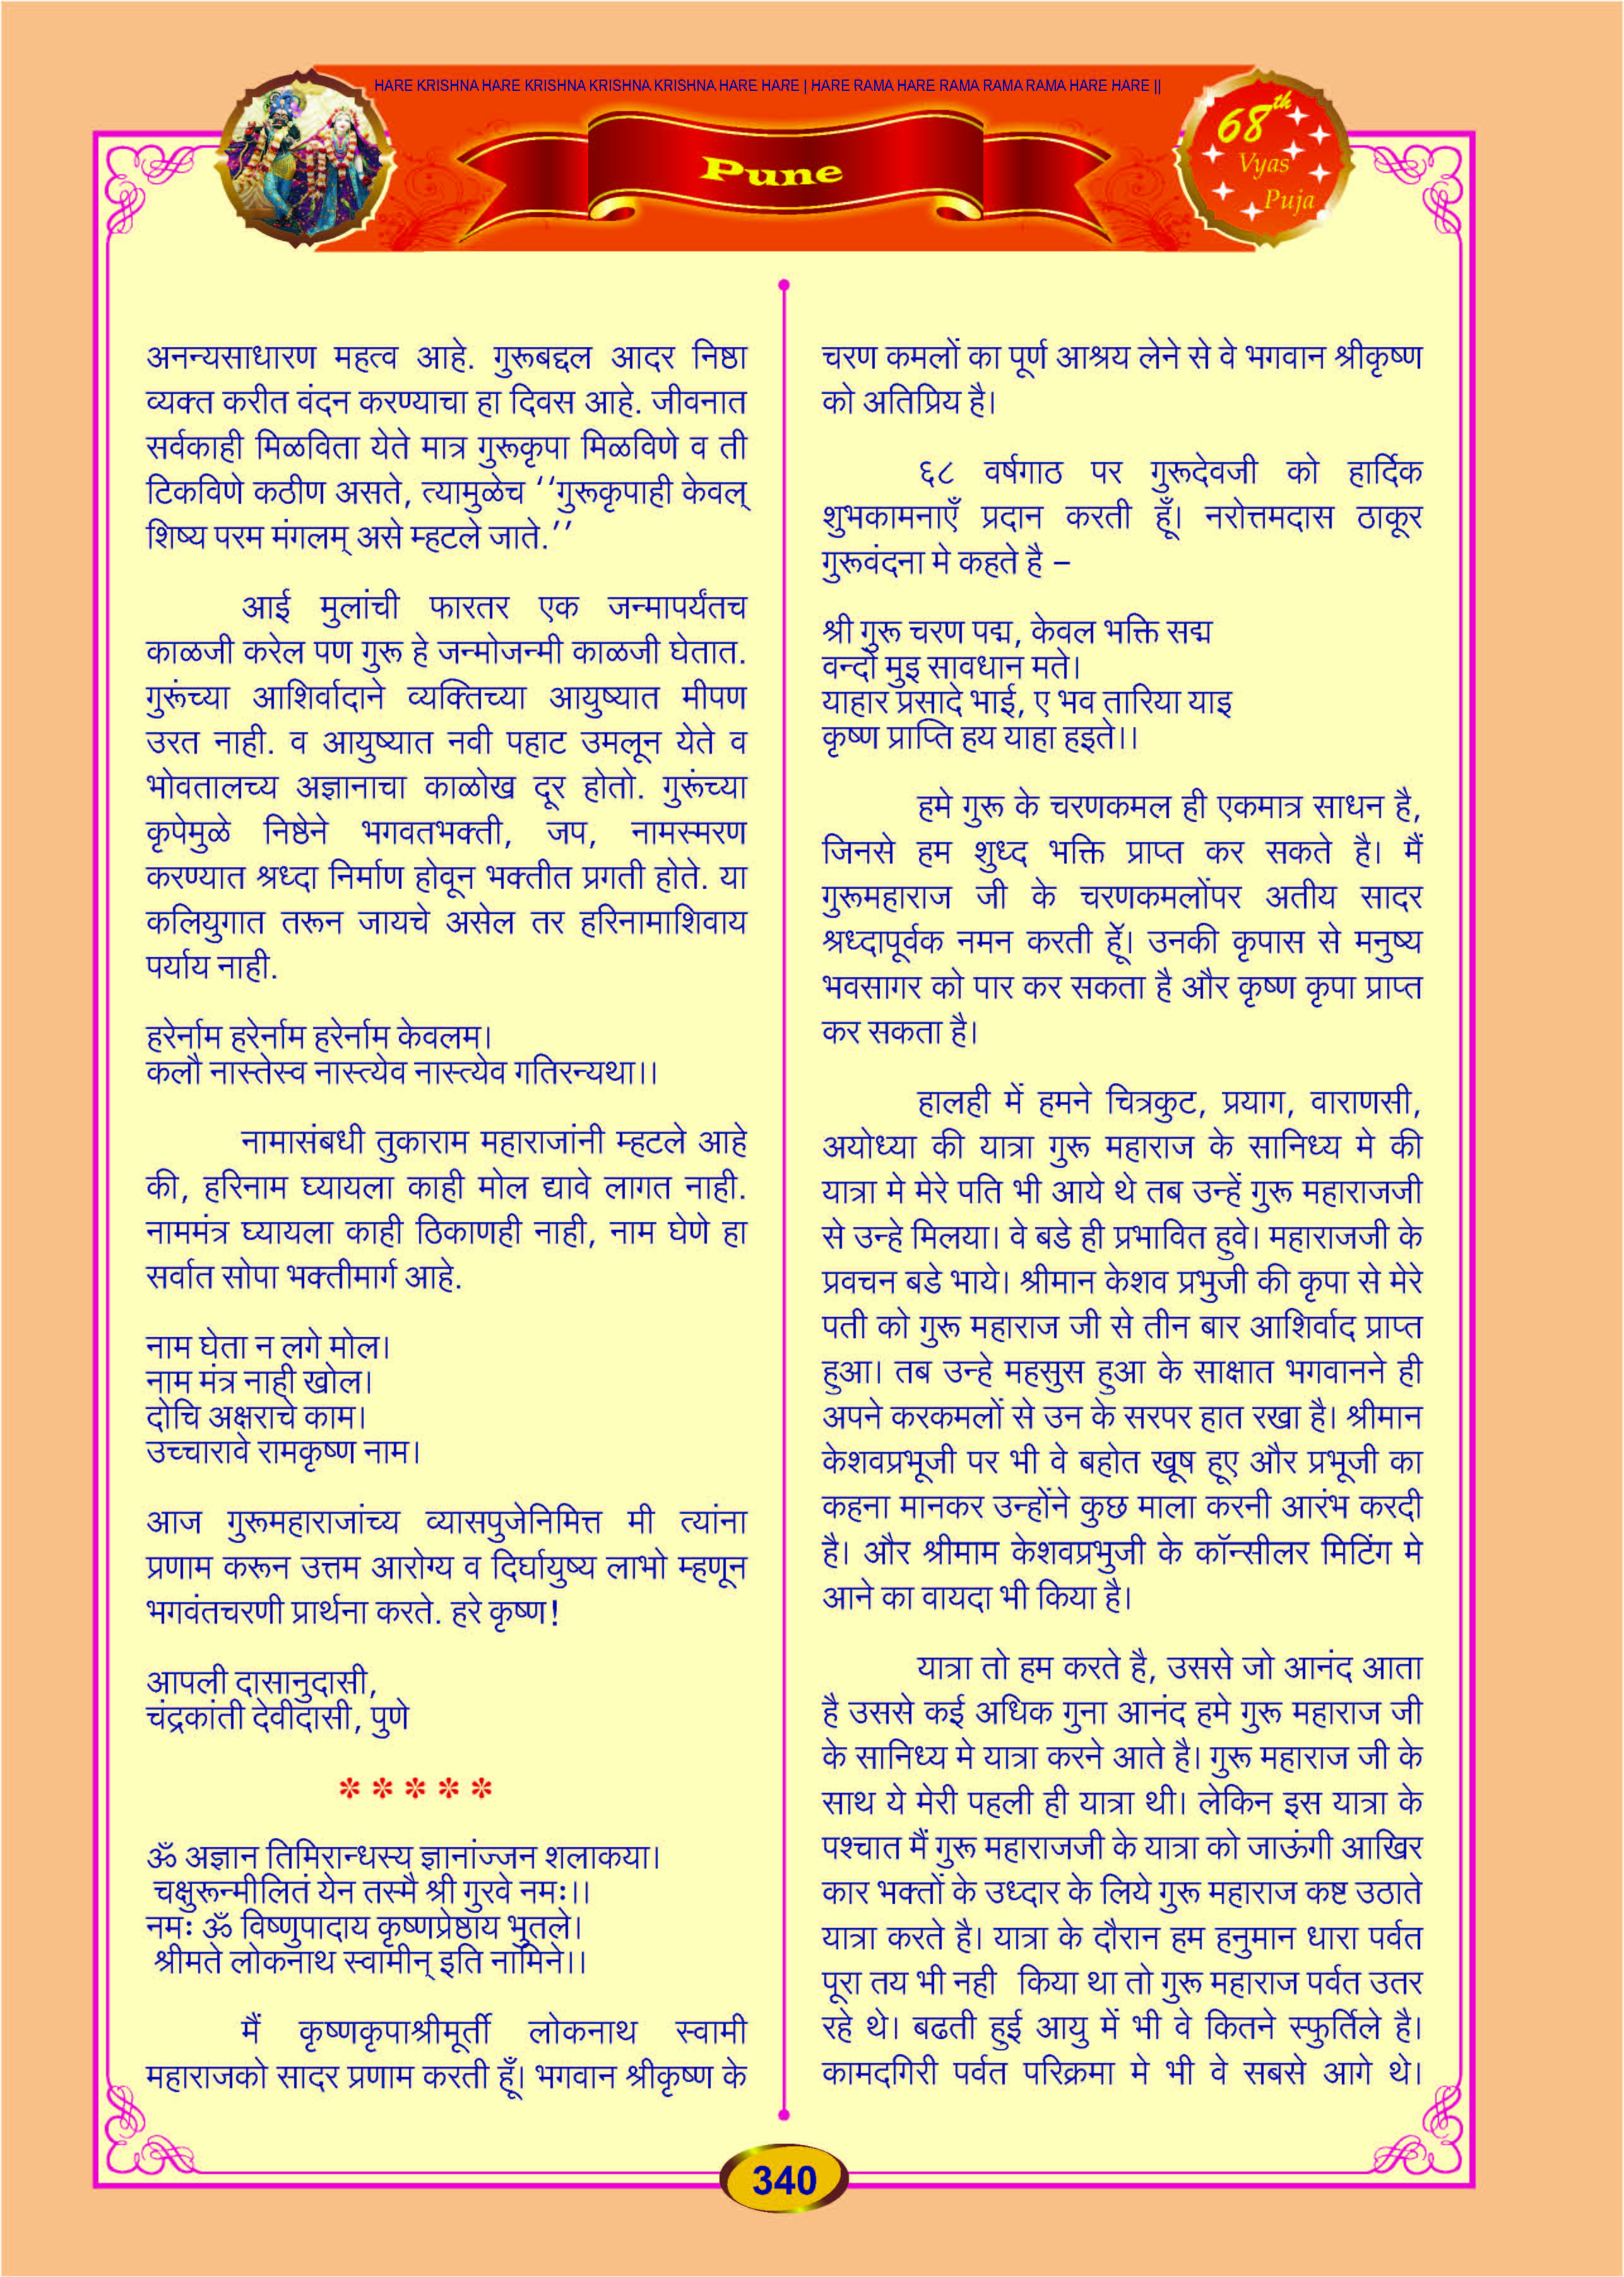 HARE KRISHNA HARE KRISHNA KRISHNA KRISHNA HARE HARE | HARE RAMA HARE RAMA RAMA RAMA HARE HARE ||
Pune
68th
Vyas
Puja
अनन्यसाधारण महत्व आहे. गुरूबद्दल आदर निष्ठा
व्यक्त करीत वंदन करण्याचा हा दिवस आहे. जीवनात
सर्वकाही मिळविता येते मात्र गुरूकृपा मिळविणे व ती
टिकविणे कठीण असते, त्यामुळेच ‘‘गुरूकृपाही केवल्
शिष्य परम मंगलम् असे म्हटले जाते.’’
आई मुलांची फारतर एक जन्मापर्यंतच
काळजी करेल पण गुरू हे जन्मोजन्मी काळजी घेतात.
गुरूंच्या आशिर्वादाने व्यक्तिच्या आयुष्यात मीपण
उरत नाही. व आयुष्यात नवी पहाट उमलून येते व
भोवतालच्य अज्ञानाचा काळोख दूर होतो. गुरूंच्या
कृपेमुळे निष्ठेने भगवतभक्ती, जप, नामस्मरण
करण्यात श्रध्दा निर्माण होवून भक्तीत प्रगती होते. या
कलियुगात तरून जायचे असेल तर हरिनामाशिवाय
पर्याय नाही.
हरेर्नाम हरेर्नाम हरेर्नाम केवलम।
कलौ नास्तेस्व नास्त्येव नास्त्येव गतिरन्यथा।।
नामासंबधी तुकाराम महाराजांनी म्हटले आहे
की, हरिनाम घ्यायला काही मोल द्यावे लागत नाही.
नाममंत्र घ्यायला काही ठिकाणही नाही, नाम घेणे हा
सर्वात सोपा भक्तीमार्ग आहे.
नाम घेता न लगे मोल।
नाम मंत्र नाही खोल।
दोचि अक्षराचे काम।
उच्चारावे रामकृष्ण नाम।
आज गुरूमहाराजांच्य व्यासपुजेनिमित्त मी त्यांना
प्रणाम करून उत्तम आरोग्य व दिर्घायुष्य लाभो म्हणून
भगवंतचरणी प्रार्थना करते. हरे कृष्ण!
आपली दासानुदासी,
चंद्रकांती देवीदासी, पुणे
* * * * *
ॐ अज्ञान तिमिरान्धस्य ज्ञानांज्जन शलाकया।
चक्षुरून्मीलितं येन तस्मै श्री गुरवे नमः।।
नमः ॐ विष्णुपादाय कृष्णप्रेष्ठाय भुतले।
श्रीमते लोकनाथ स्वामीन् इति नामिने।।
मैं कृष्णकृपाश्रीमूर्ती लोकनाथ स्वामी
महाराजको सादर प्रणाम करती हूँ। भगवान श्रीकृष्ण के
चरण कमलों का पूर्ण आश्रय लेने से वे भगवान श्रीकृष्ण
को अतिप्रिय है।
६८ वर्षगाठ पर गुरूदेवजी को हार्दिक
शुभकामनाएँ प्रदान करती हूँ। नरोत्तमदास ठाकूर
गुरूवंदना मे कहते है –
श्री गुरू चरण पद्म, केवल भक्ति सद्म
वन्दो मुइ सावधान मते।
याहार प्रसादे भाई, ए भव तारिया याइ
कृष्ण प्राप्ति हय याहा हइते।।
हमे गुरू के चरणकमल ही एकमात्र साधन है,
जिनसे हम शुध्द भक्ति प्राप्त कर सकते है। मैं
गुरूमहाराज जी के चरणकमलोंपर अतीय सादर
श्रध्दापूर्वक नमन करती हूॅं। उनकी कृपास से मनुष्य
भवसागर को पार कर सकता है और कृष्ण कृपा प्राप्त
कर सकता है।
हालही में हमने चित्रकुट, प्रयाग, वाराणसी,
अयोध्या की यात्रा गुरू महाराज के सानिध्य मे की
यात्रा मे मेरे पति भी आये थे तब उन्हें गुरू महाराजजी
से उन्हे मिलया। वे बडे ही प्रभावित हुवे। महाराजजी के
प्रवचन बडे भाये। श्रीमान केशव प्रभुजी की कृपा से मेरे
पती को गुरू महाराज जी से तीन बार आशिर्वाद प्राप्त
हुआ। तब उन्हे महसुस हुआ के साक्षात भगवानने ही
अपने करकमलों से उन के सरपर हात रखा है। श्रीमान
केशवप्रभूजी पर भी वे बहोत खूष हूए और प्रभूजी का
कहना मानकर उन्होंने कुछ माला करनी आरंभ करदी
है। और श्रीमाम केशवप्रभुजी के कॉन्सीलर मिटिंग मे
आने का वायदा भी किया है।
यात्रा तो हम करते है, उससे जो आनंद आता
है उससे कई अधिक गुना आनंद हमे गुरू महाराज जी
के सानिध्य मे यात्रा करने आते है। गुरू महाराज जी के
साथ ये मेरी पहली ही यात्रा थी। लेकिन इस यात्रा के
पश्चात मैं गुरू महाराजजी के यात्रा को जाऊंगी आखिर
कार भक्तों के उध्दार के लिये गुरू महाराज कष्ट उठाते
यात्रा करते है। यात्रा के दौरान हम हनुमान धारा पर्वत
पूरा तय भी नही किया था तो गुरू महाराज पर्वत उतर
रहे थे। बढती हुई आयु में भी वे कितने स्फुर्तिले है।
कामदगिरी पर्वत परिक्रमा मे भी वे सबसे आगे थे।
340